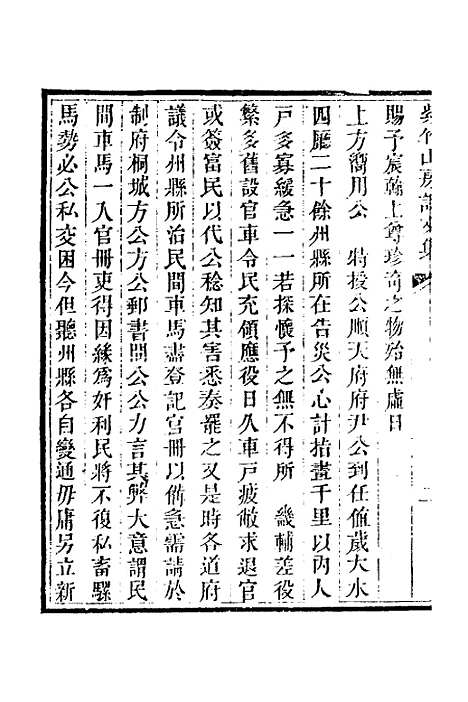 山房詩文集
賜予宸翰上尊珍奇之物殆無虛日
上方嚮用公　特授公順天府府尹公到任值歲大水
四廳二十餘州縣所在告災公心計指畫千里以內人
戶多寡緩急一一若探懷予之無不得所　畿輔差役
繁多舊設官車令民充領應役日久車戶疲敝求退官
或簽富民以代公稔知其害悉奏罷之又是時各道府
議令州縣所治民間車馬盡登記官冊以備急需請於
制府桐城方公方公郵書問公公力言其弊大意謂民
間車馬一入官冊吏得因緣為奸利民將不復私畜騾
馬勢必公私交困今但聽州縣各自變通毋庸另立新